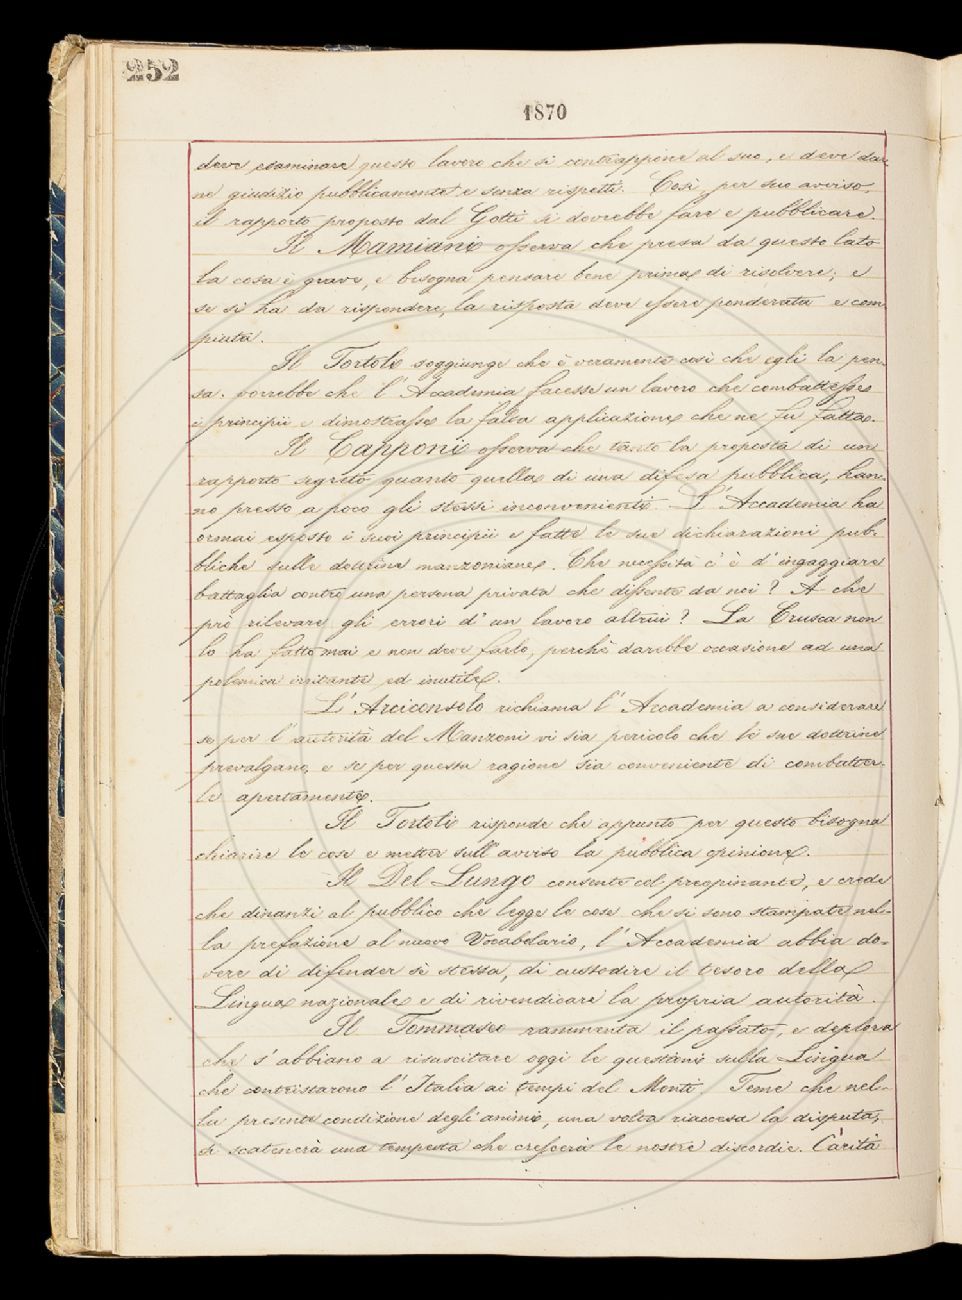 252
1870
deve esaminare questo lavoro che si contrappone al suo, e deve dar-
ne giudizio pubblicamente e senza rispetti. Così, per suo avviso,
il rapporto proposto dal Gotti si dovrebbe fare e pubblicare.
Il Mamiani osserva che presa da questo lato
la cosa è grave, e bisogna pensare bene prima di risolvere; e
se si ha da rispondere, la risposta deve essere ponderata e com-
piuta.
Il Tortoli soggiunge che è veramente così che egli la pen-
sa. vorrebbe che l'Accademia facesse un lavoro che combattesse
i principii e dimostrasse la falsa applicazione che ne fu fatta.
Il Capponi osserva che tanto la proposta di un
rapporto segreto quanto quella di una difesa pubblica, han-
no presso a poco gli stessi inconvenienti. L'Accademia ha
ormai esposto i suoi principii e fatte le sue dichiarazioni pub-
bliche sulle dottrine manzoniane. Che necessità c'è d'ingaggiare
battaglia contro una persona privata che dissente da noi? A che
prò rilevare gli errori d'un lavoro altrui? La Crusca non
lo ha fatto mai e non deve farlo, perchè darebbe occasione ad una
polemica irritante ed inutile.
L'Arciconsolo richiama l'Accademia a considerare
se per l'autorità del Manzoni vi sia pericolo che le sue dottrine
prevalgano, e se per questa ragione sia conveniente di combatter-
le apertamente.
Il Tortoli risponde che appunto per questo bisogna
chiarire le cose e metter sull'avviso la pubblica opinione.
Il Del Lungo consente col preopinante, e crede
che dinanzi al pubblico che legge le cose che si sono stampate nel-
la prefazione al nuovo Vocabolario, l'Accademia abbia do-
vere di difender sè stessa, di custodire il tesoro della
Lingua nazionale e di rivendicare la propria autorità.
Il Tommaseo rammenta il passato, e deplora
che s'abbiano a risuscitare oggi le questioni sulla Lingua
che contristarono l'Italia ai tempi del Monti. Teme che nel-
la presente condizione degli animi, una volta riaccesa la disputa,
si scatenerà una tempesta che crescerà le nostre discordie. Carità